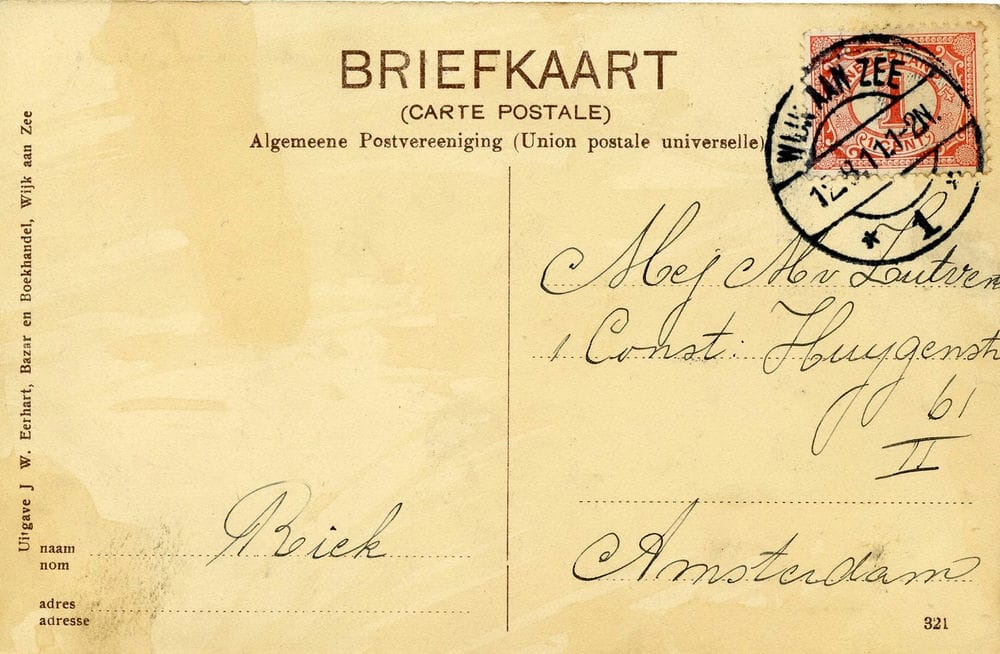 BRIEFKAART
(CARTE POSTALE)
Algemeene Postvereeniging (Union postale universelle)
NEDERLAND
1
1 CENT
WIJK AAN ZEE
12.8.11.1-2N.
* 1 *
Uitgave J W. Eerhart, Bazar en Boekhandel, Wijk aan Zee
Mej Mv Zutven
1 Const: Huygenstr
61
II
Amsterdam
naam Riek
nom
adres
adresse
321